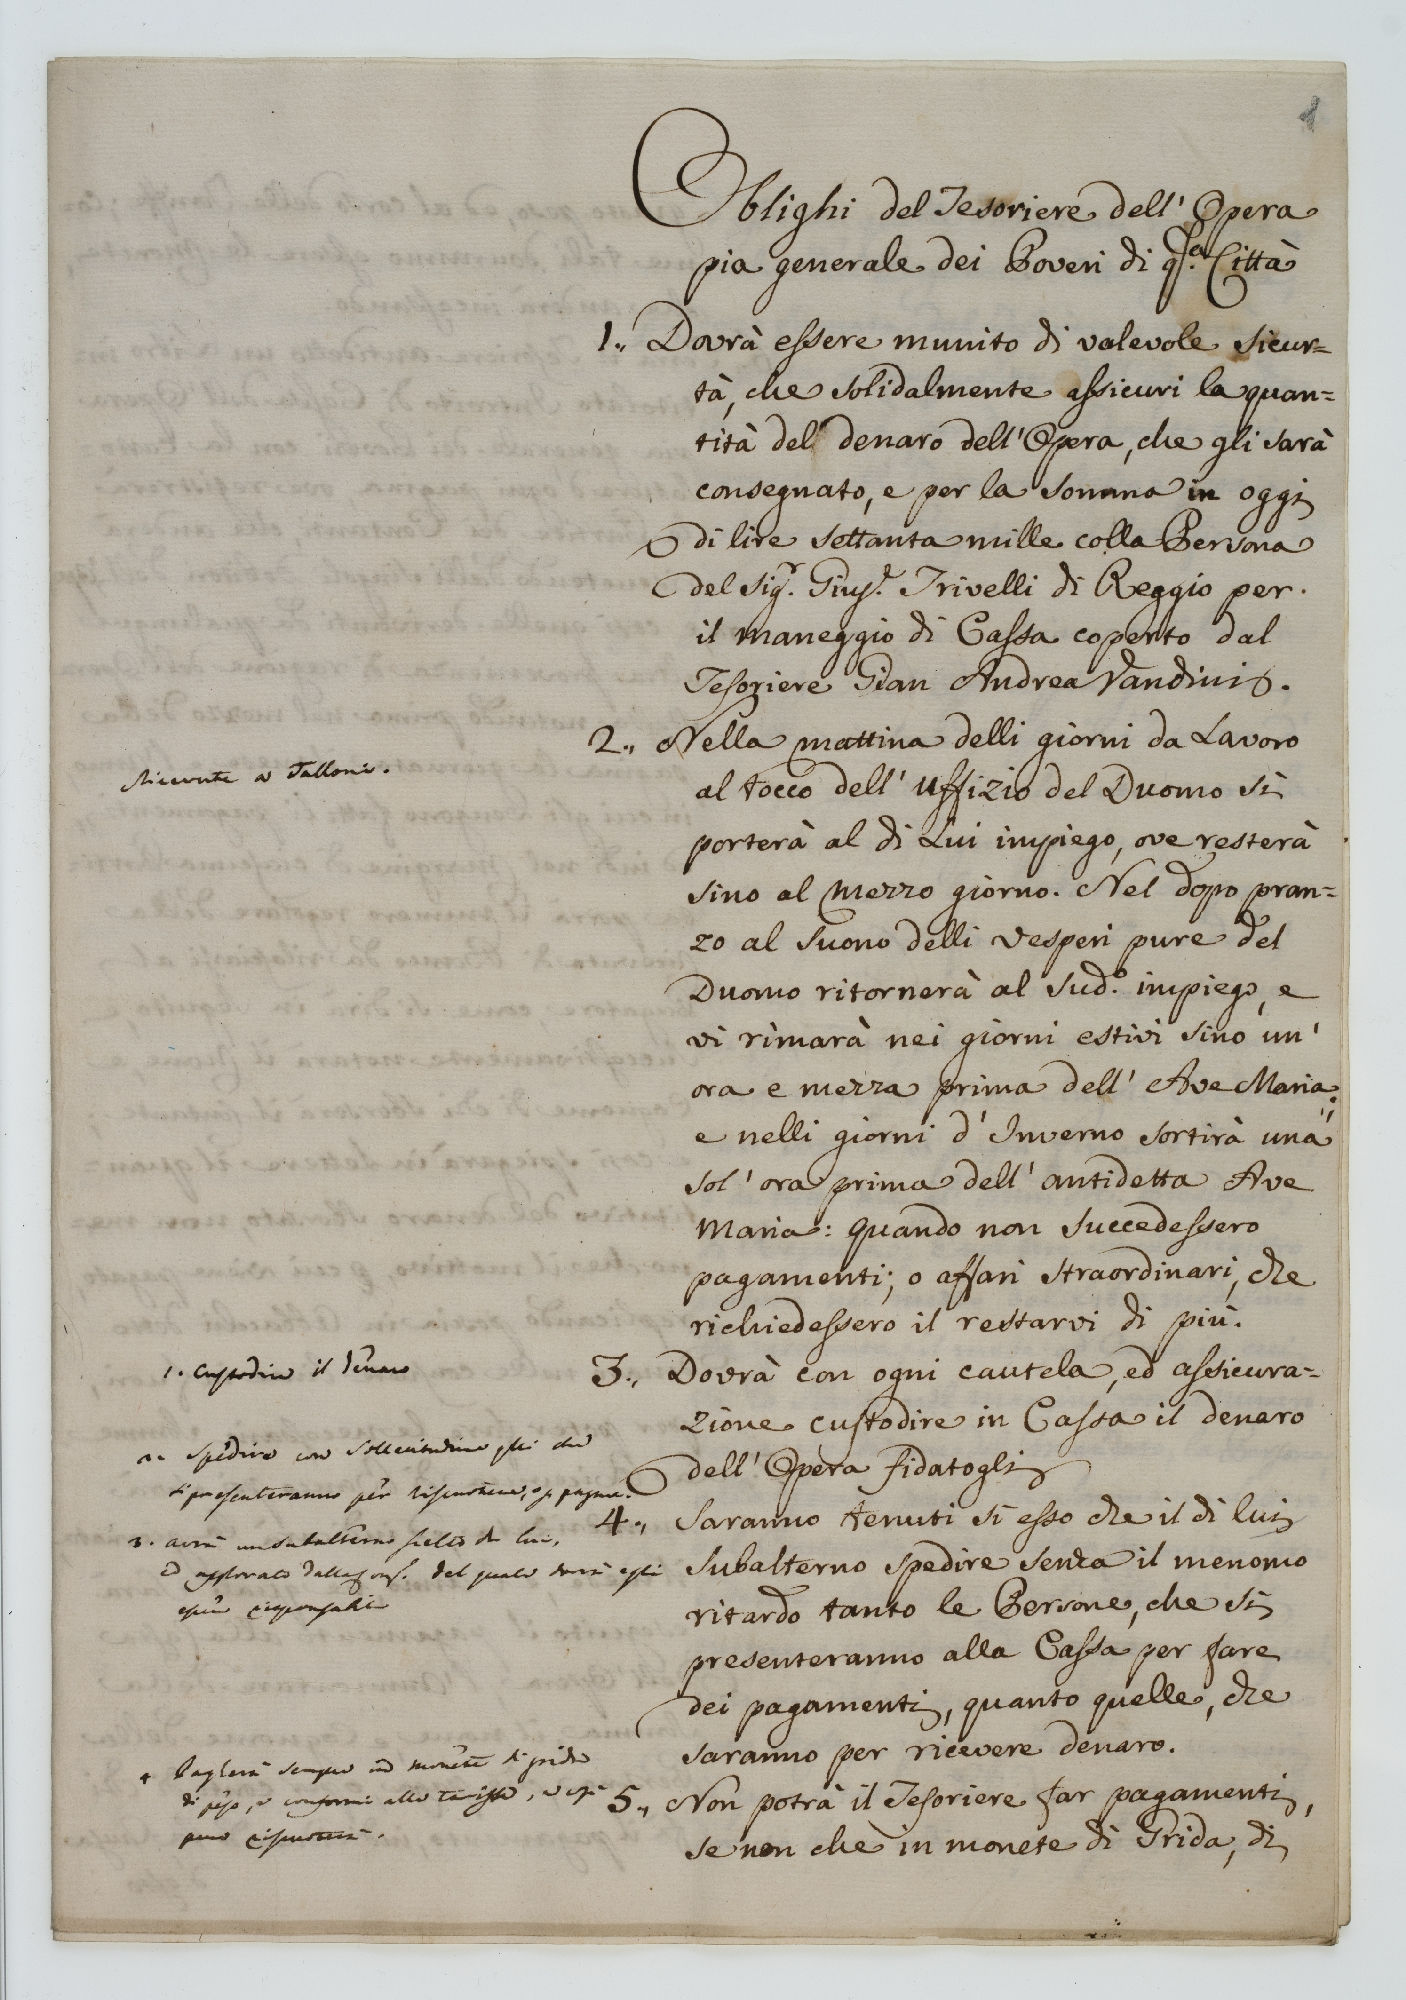 1
Oblighi del Tesoriere dell' Opera
pia generale dei Poveri di qsta. Città
1., Dovrà essere munito di valevole sicur=
tà, che solidalmente assicuri la quan=
tità del denaro dell' Opera, che gli sarà
consegnato, e per la somma in oggi
di lire settanta mille colla Persona
del Sigr. Giuse. Trivelli di Reggio per
il maneggio di Cassa coperto dal
Tesoriere Gian Andrea Vandini.
2., Nella mattina delli giorni da Lavoro
al tocco dell' uffizio del Duomo si
porterà al di Lui impiego, ove resterà
sino al mezzo giorno. Nel dopo pran=
zo al suono delli vesperi pure del
Duomo ritornerà al sudo. impiego, e
vi rimarà nei giorni estivi sino un'
ora e mezza prima dell' Ave Maria:
e nelli giorni d' Inverno sortirà una
sol' ora prima dell' antidetta Ave
Maria: quando non succedessero
pagamenti, o affari straordinari, che
richiedessero il restarvi di più.
3., Dovrà con ogni cautela, ed assicura=
zione custodire in Cassa il denaro
dell' Opera fidatogli
4., Saranno tenuti sì esso che il di lui
subalterno spedire senza il menomo
ritardo tanto le Persone, che si
presenteranno alla Cassa per fare
dei pagamenti, quanto quelle, che
saranno per ricevere denaro.
5., Non potrà il Tesoriere far pagamenti,
se non che in monete di Grida, di
Ricevute a Talloni.
1. Custodire il denaro
2. Spedire con sollecitudine gli che
si presenteranno per riscuotere, o p pagare.
3. avrà un subalterno scielto da lui,
ed approvato dalla Cong. del quale dovrà egli
essere responsabile
4 Pagherà sempre in monete di grida
di peso, e conformi alle tariffe, e così
pure riscuoterà.